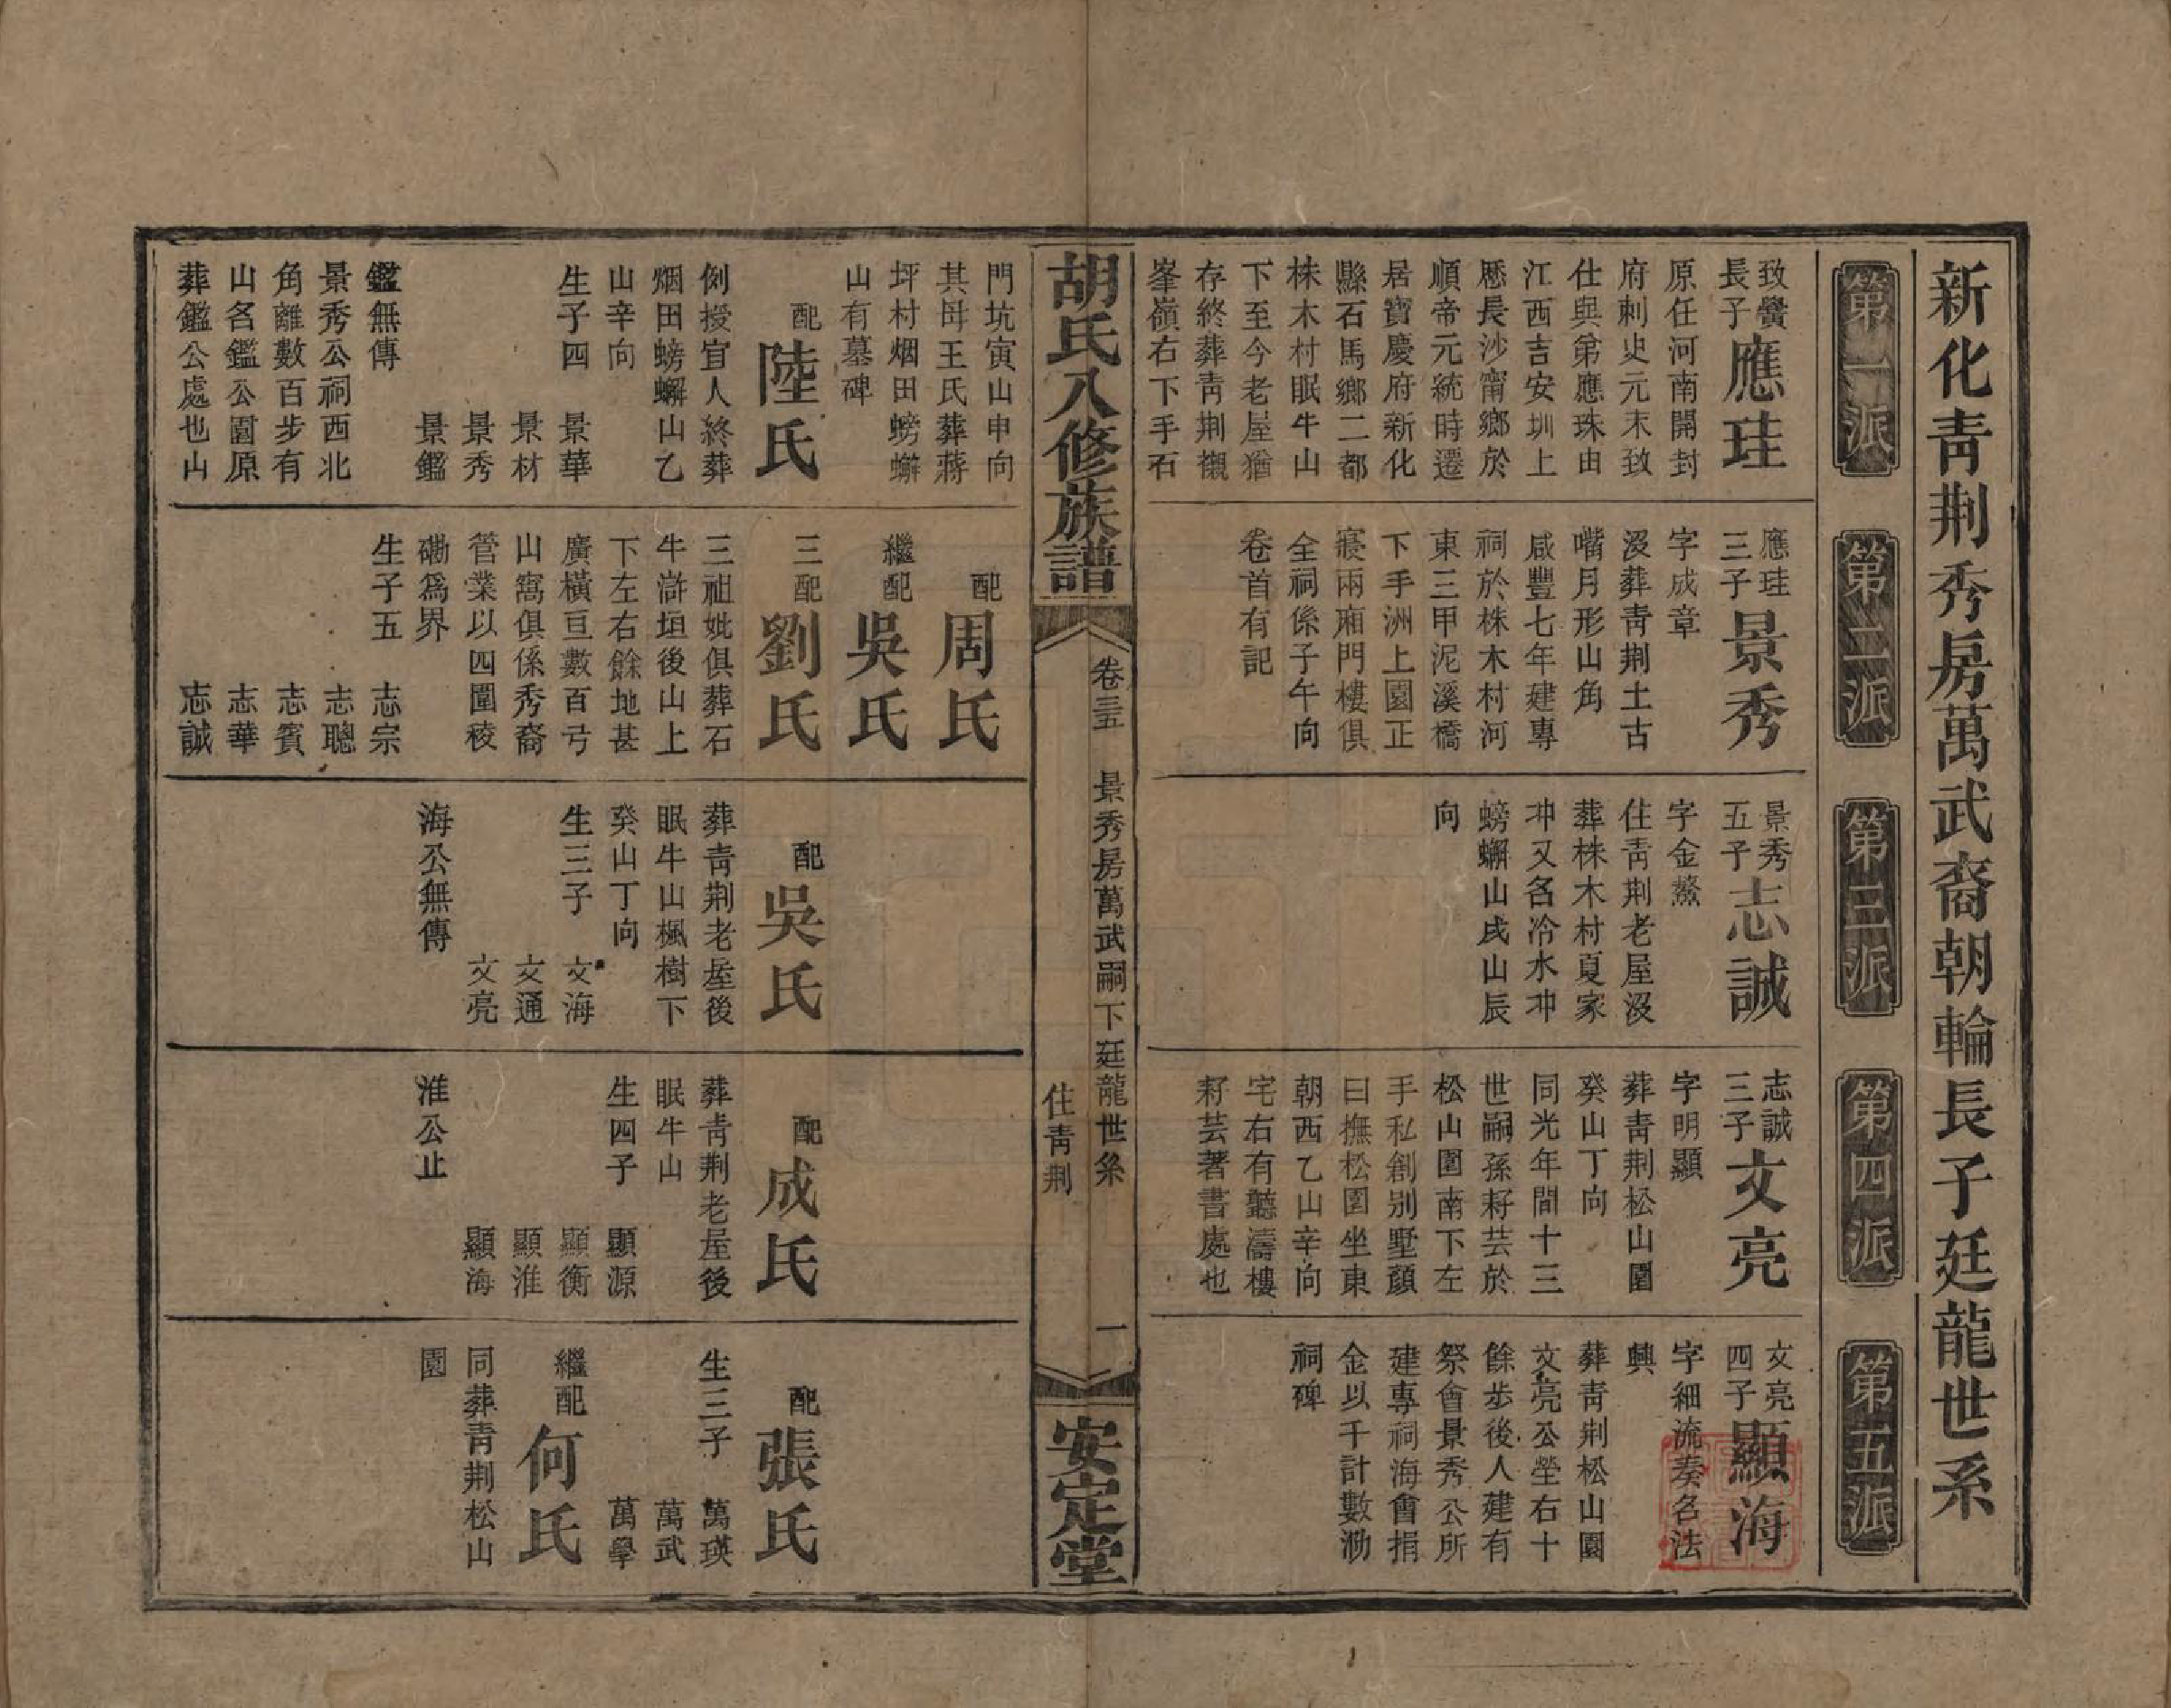 新化靑荆秀房萬武裔朝輪長子廷龍世系
第一派
致黌
長子
應珪
原任河南開封
府刺史元末致
仕與弟應珠由
江西吉安圳上
歷長沙甯鄉於
順帝元統時遷
居寶慶府新化
縣石馬鄉二都
株木村眠牛山
下至今老屋猶
存終葬靑荆襯
峯嶺右下手石
門坑寅山申向
其母王氏葬蔣
坪村烟田螃蠏
山有墓碑
配
陸氏
例授宜人終葬
烟田螃蠏山乙
山辛向
生子四 景華
景材
景秀
景鑑
鑑無傳
景秀公祠西北
角離數百步有
山名鑑公園原
葬鑑公處也山
第二派
應珪
三子
景秀
字成章
沒葬靑荆土古
喈月形山角
咸豐七年建專
祠於株木村河
東三甲泥溪橋
下手洲上園正
寢兩廂門樓俱
全祠係子午向
卷首有記
配
周氏
繼配
吳氏
三配
劉氏
三祖妣俱葬石
牛滸垣後山上
下左右餘地甚
廣橫亘數百弓
山窩俱係秀裔
管業以四圍稜
磡爲界
生子五 志宗
志聰
志賓
志華
志誠
第三派
景秀
五子
志誠
字金鰲
住靑荆老屋沒
葬株木村夏家
冲又名冷水冲
螃蠏山戌山辰
向
配
吳氏
葬靑荆老屋後
眠牛山楓樹下
癸山丁向
生三子 文海
文通
文亮
海公無傳
第四派
志誠
三子
文亮
字明顯
葬靑荆松山園
癸山丁向
同光年間十三
世嗣孫耔芸於
松山園南下左
手私創別墅顏
曰撫松園坐東
朝西乙山辛向
宅右有聽濤樓
耔芸著書處也
配
成氏
葬靑荆老屋後
眠牛山
生四子 顯源
顯衡
顯淮
顯海
淮公止
第五派
文亮
四子
顯海
字細流奏名法
興
葬靑荆松山園
文亮公塋右十
餘步後人建有
祭會景秀公所
建專祠海會捐
金以千計數泐
祠碑
配
張氏
生三子 萬瑛
萬武
萬學
繼配
何氏
同葬靑荆松山
園
胡氏八修族譜
卷三五 景秀房萬武嗣下廷龍世系
住靑荆
一
安定堂